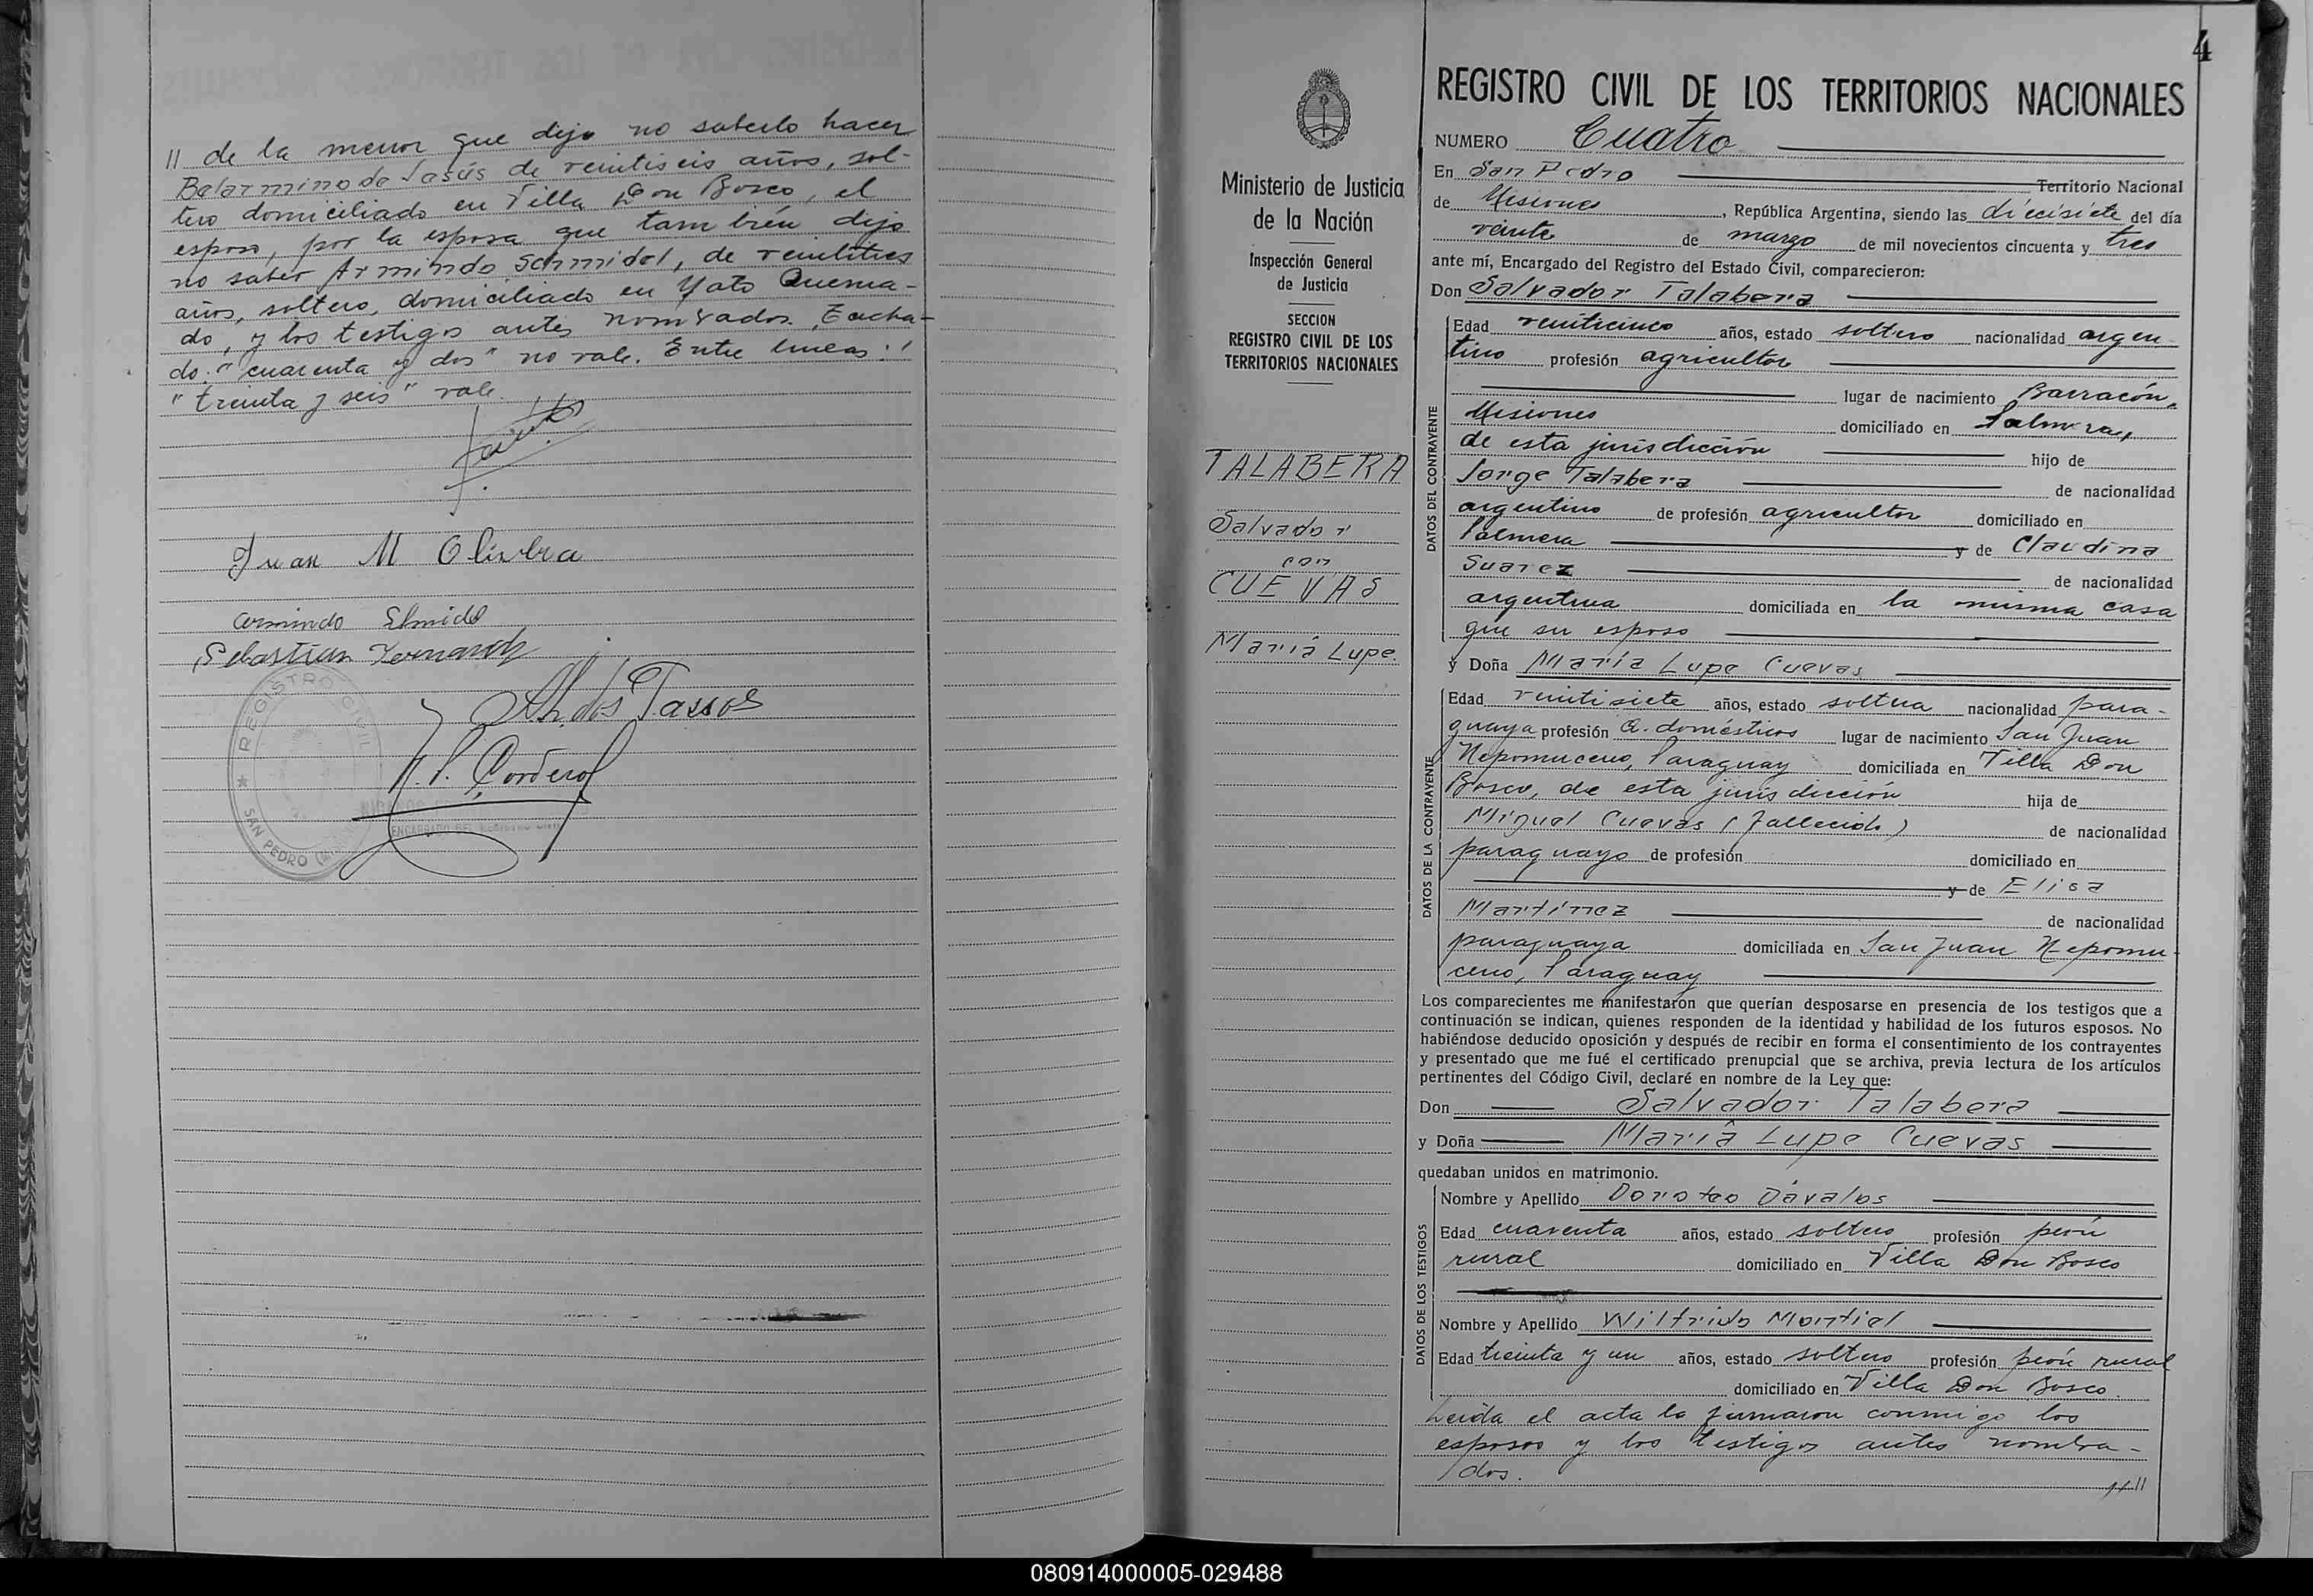 // de la menor que dijo no saberlo hacer
Belarmino de Jesús de veintiseis años, sol-
tero domiciliado en Villa Don Bosco, el
esposo, por la esposa que tam bién dijo
no saber Armindo Schmidel, de veintitres
años, soltero, domiciliado en Yato Quema-
do, y los testigos antes nombrados. Tacha-
do: "cuarenta y dos" no vale. Entre lineas:
"treinta y seis" vale.
Juan M Olivera
Armindo
Sebastian
A. dos Passos
Cordero
REGISTRO CIVIL
SAN PEDRO
ENCARGADO DEL REGISTRO CIVIL
4
Ministerio de Justicia
de la Nación
Inspección General
de Justicia
SECCION
REGISTRO CIVIL DE LOS
TERRITORIOS NACIONALES
TALABERA
Salvador
con
CUEVAS
María Lupe.
REGISTRO CIVIL DE LOS TERRITORIOS NACIONALES
NUMERO Cuatro
En San Pedro Territorio Nacional
de Misiones, República Argentina, siendo las diecisiete del día
veinte de marzo de mil novecientos cincuenta y tres
ante mí, Encargado del Registro del Estado Civil, comparecieron:
Don Salvador Talabera
DATOS DEL CONTRAYENTE
Edad veinticinco años, estado soltero nacionalidad argen-
tino profesión agricultor
lugar de nacimiento Barracón,
Misiones domiciliado en Palmera,
de esta jurisdicción hijo de
Jorge Talabera de nacionalidad
argentino de profesión agricultor domiciliado en
Palmera y de Claudina
Suarez de nacionalidad
argentina domiciliada en la misma casa
que su esposo
y Doña María Lupe Cuevas
DATOS DE LA CONTRAYENTE
Edad veintisiete años, estado soltera nacionalidad para-
guaya profesión Q. domésticos lugar de nacimiento San Juan
Nepomuceno, Paraguay domiciliada en Villa Don
Bosco, de esta jurisdicción hija de
Miguel Cuevas (fallecido) de nacionalidad
paraguayo de profesión domiciliado en
y de Elisa
Martínez de nacionalidad
paraguaya domiciliada en San Juan Nepomu-
ceno, Paraguay
Los comparecientes me manifestaron que querían desposarse en presencia de los testigos que a
continuación se indican, quienes responden de la identidad y habilidad de los futuros esposos. No
habiéndose deducido oposición y después de recibir en forma el consentimiento de los contrayentes
y presentado que me fué el certificado prenupcial que se archiva, previa lectura de los artículos
pertinentes del Código Civil, declaré en nombre de la Ley que:
Don Salvador Talabera
y Doña María Lupe Cuevas
quedaban unidos en matrimonio.
DATOS DE LOS TESTIGOS
Nombre y Apellido Doroteo Dávalos
Edad cuarenta años, estado soltero profesión peón
rural domiciliado en Villa Don Bosco
Nombre y Apellido Wilfrido Montiel
Edad treinta y un años, estado soltero profesión peón rural
domiciliado en Villa Don Bosco.
Leida el acta la firmaron conmigo los
esposos y los testigos antes nombra-
dos.
080914000005-029488